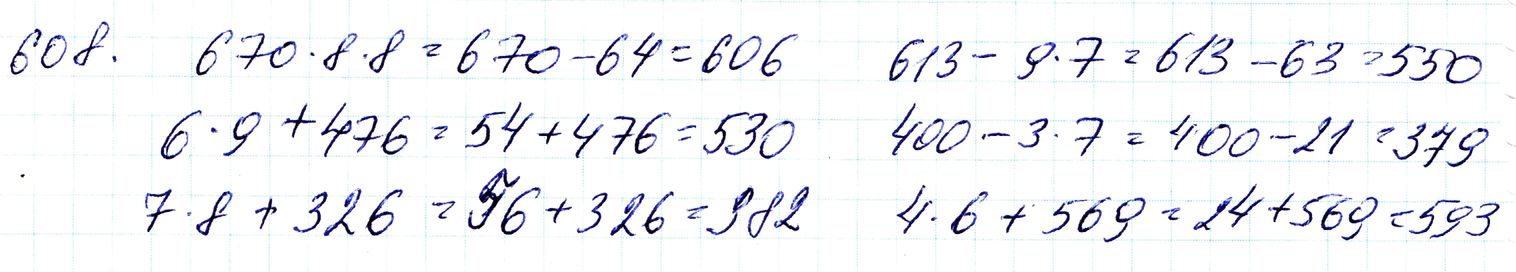 608. 670·8·8=670-64=606 613-9·7=613-63=550
6·9+476=54+476=530 400-3·7=400-21=379
7·8+326=56+326=382 4·6+569=24+569=593